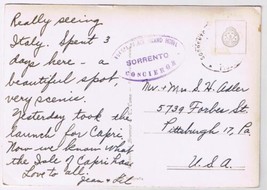 Really seeing
Italy. Spent 3
days here - a
beautiful spot,
very scenic.
Yesterday took the
launch for Capri.
Now we know what
the Isle of Capri has.
Love to all,
Jean + Sol
SORRENTO
CONCIERGE
Mr. + Mrs. S. H. Adler
5739 Forbes St.
Pittsburgh 17, Pa.
U.S.A.